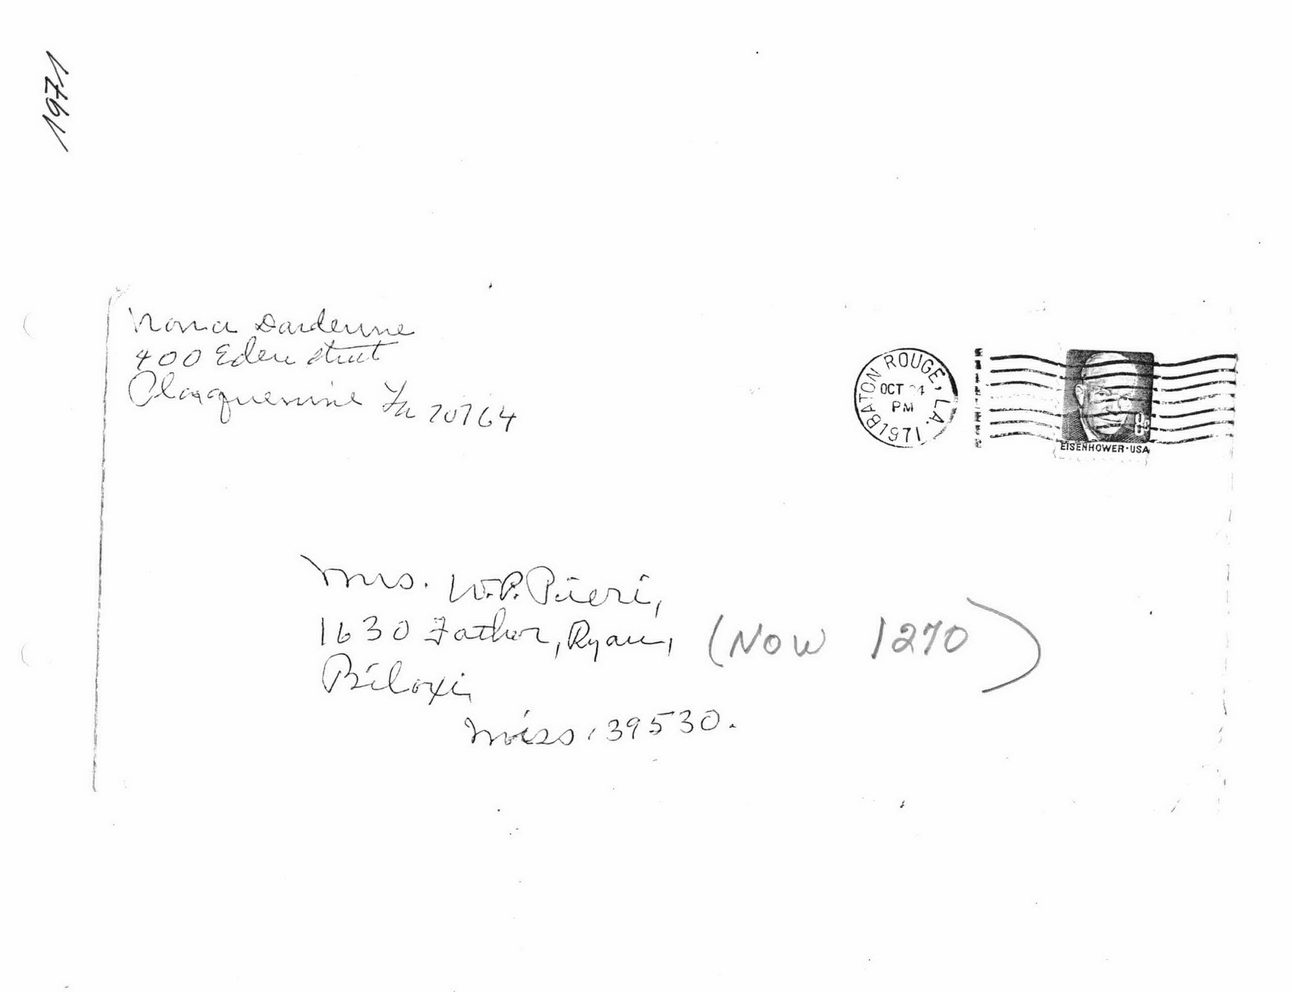 1971
Nona Dardenne
400 Eden Street
Plaquemine La 70764
BATON ROUGE, LA.
OCT 24
PM
1971
8¢
EISENHOWER·USA
Mrs. W.P. Pieri,
1630 Father, Ryan, (NOW 1270)
Biloxi,
Miss. 39530.